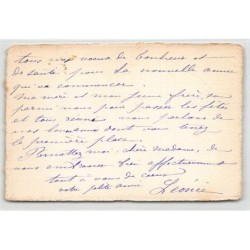 tous mes vœux de bonheur et
de santé pour la nouvelle année
qui va commencer.
Ma mère et mon jeune frère, sont
parmi nous pour passer les fêtes
et tous réunis nous parlons de
nos dont vous tenez
la première place.
Permettez moi, chère madame, de
vous embrasser bien affectueusement
tout à vous de cœur
votre petite amie Léonie